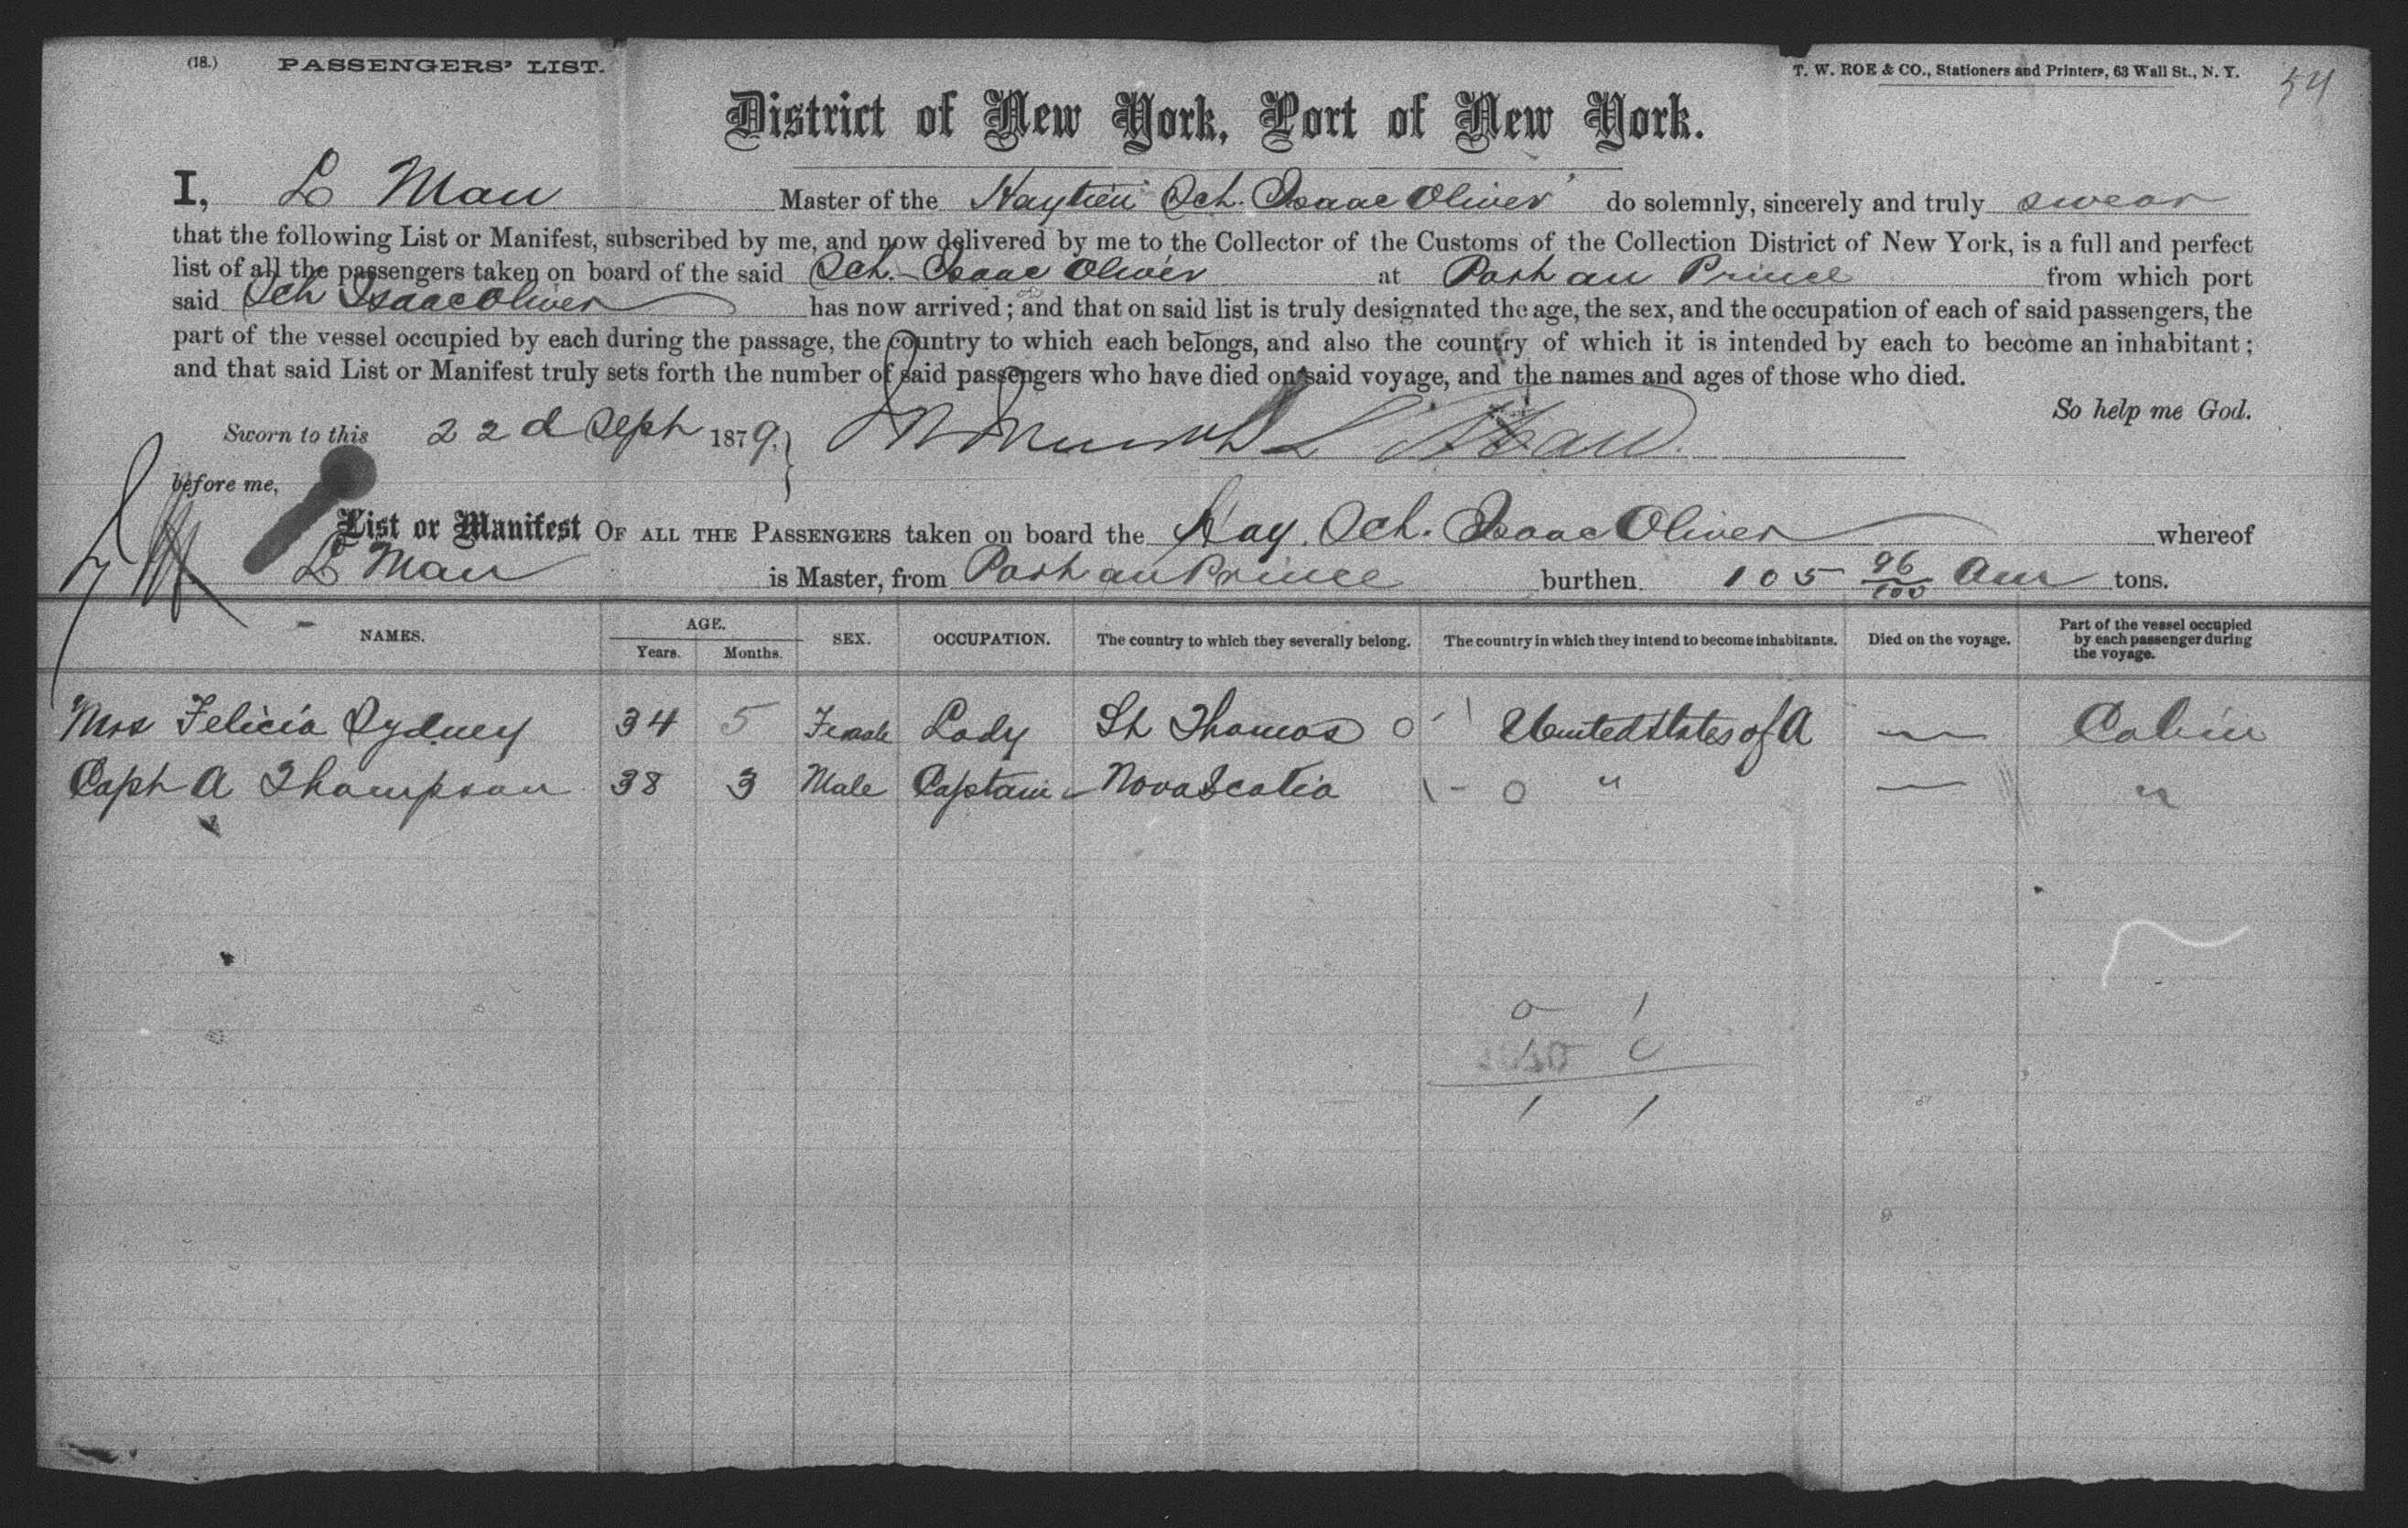 (18.) PASSENGERS' LIST.
T. W. ROE & CO., Stationers and Printers, 63 Wall St., N. Y. 54
District of New York, Port of New York.
I, L Man Master of the Haytien Sch. Isaac Oliver do solemnly, sincerely and truly swear
that the following List or Manifest, subscribed by me, and now delivered by me to the Collector of the Customs of the Collection District of New York, is a full and perfect
list of all the passengers taken on board of the said Sch. Isaac Oliver at Port au Prince from which port
said Sch Isaac Oliver has now arrived; and that on said list is truly designated the age, the sex, and the occupation of each of said passengers, the
part of the vessel occupied by each during the passage, the country to which each belongs, and also the country of which it is intended by each to become an inhabitant;
and that said List or Manifest truly sets forth the number of said passengers who have died on said voyage, and the names and ages of those who died.
So help me God.
Sworn to this 22d Sept 1879. L Man
before me,
List or Manifest OF ALL THE PASSENGERS taken on board the Hay. Sch. Isaac Oliver whereof
L Man is Master, from Port au Prince burthen 105 96/100 Am tons.
NAMES. AGE. Years. Months. SEX. OCCUPATION. The country to which they severally belong. The country in which they intend to become inhabitants. Died on the voyage. Part of the vessel occupied by each passenger during the voyage.
Mrs Felicia Sydney 34 5 Female Lady St Thomas 0 ' 1 United States of A — Cabin
Capt A Thompson 38 3 Male Captain Nova Scotia 1 - 0 " — "
0 1
0
1 1